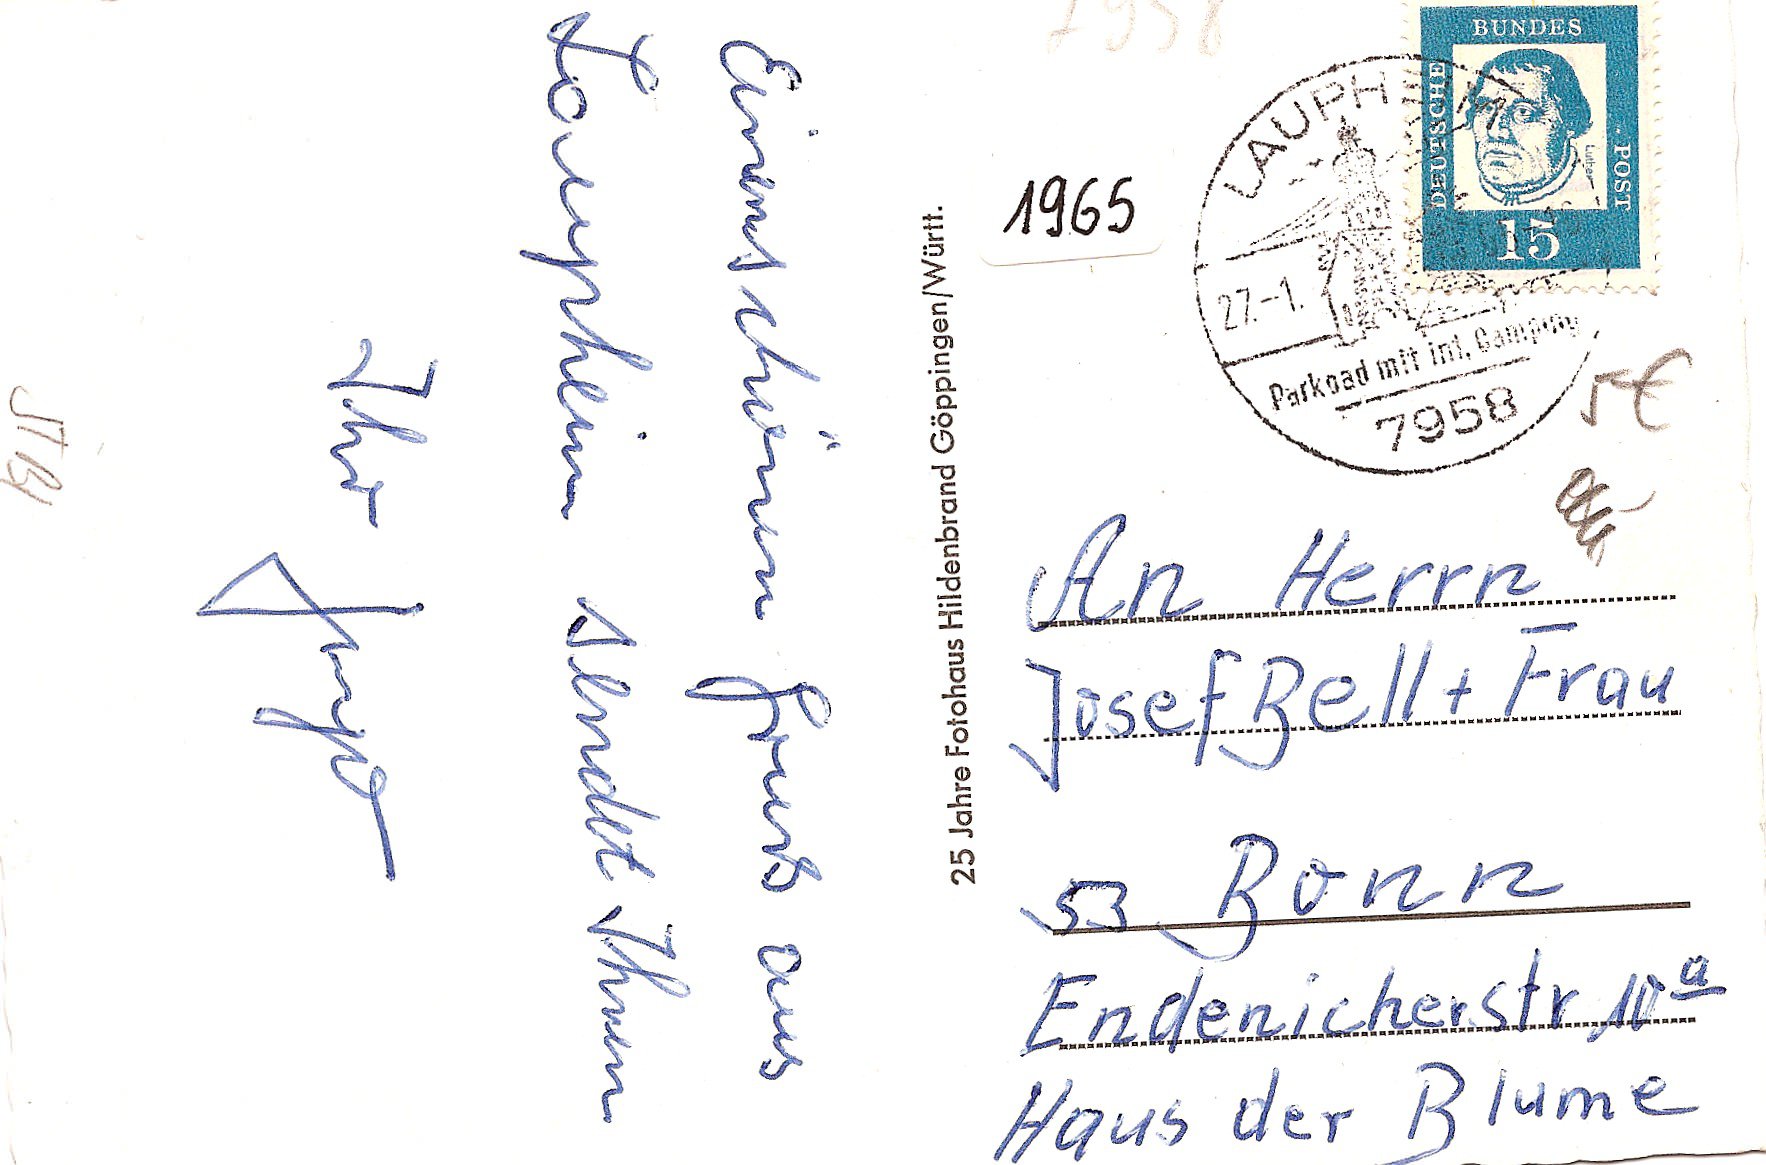 Einen schönen Gruß aus
Laupheim sendet Ihnen
Ihr
25 Jahre Fotohaus Hildenbrand Göppingen/Württ.
1965
7958
DEUTSCHE BUNDES POST
Luther
15
LAUPHEIM
27.-1.
Parkbad mit int. Camping
7958
5€
An Herrn
Josef Bell + Frau
53 Bonn
Endenicherstr 10a
Haus der Blume